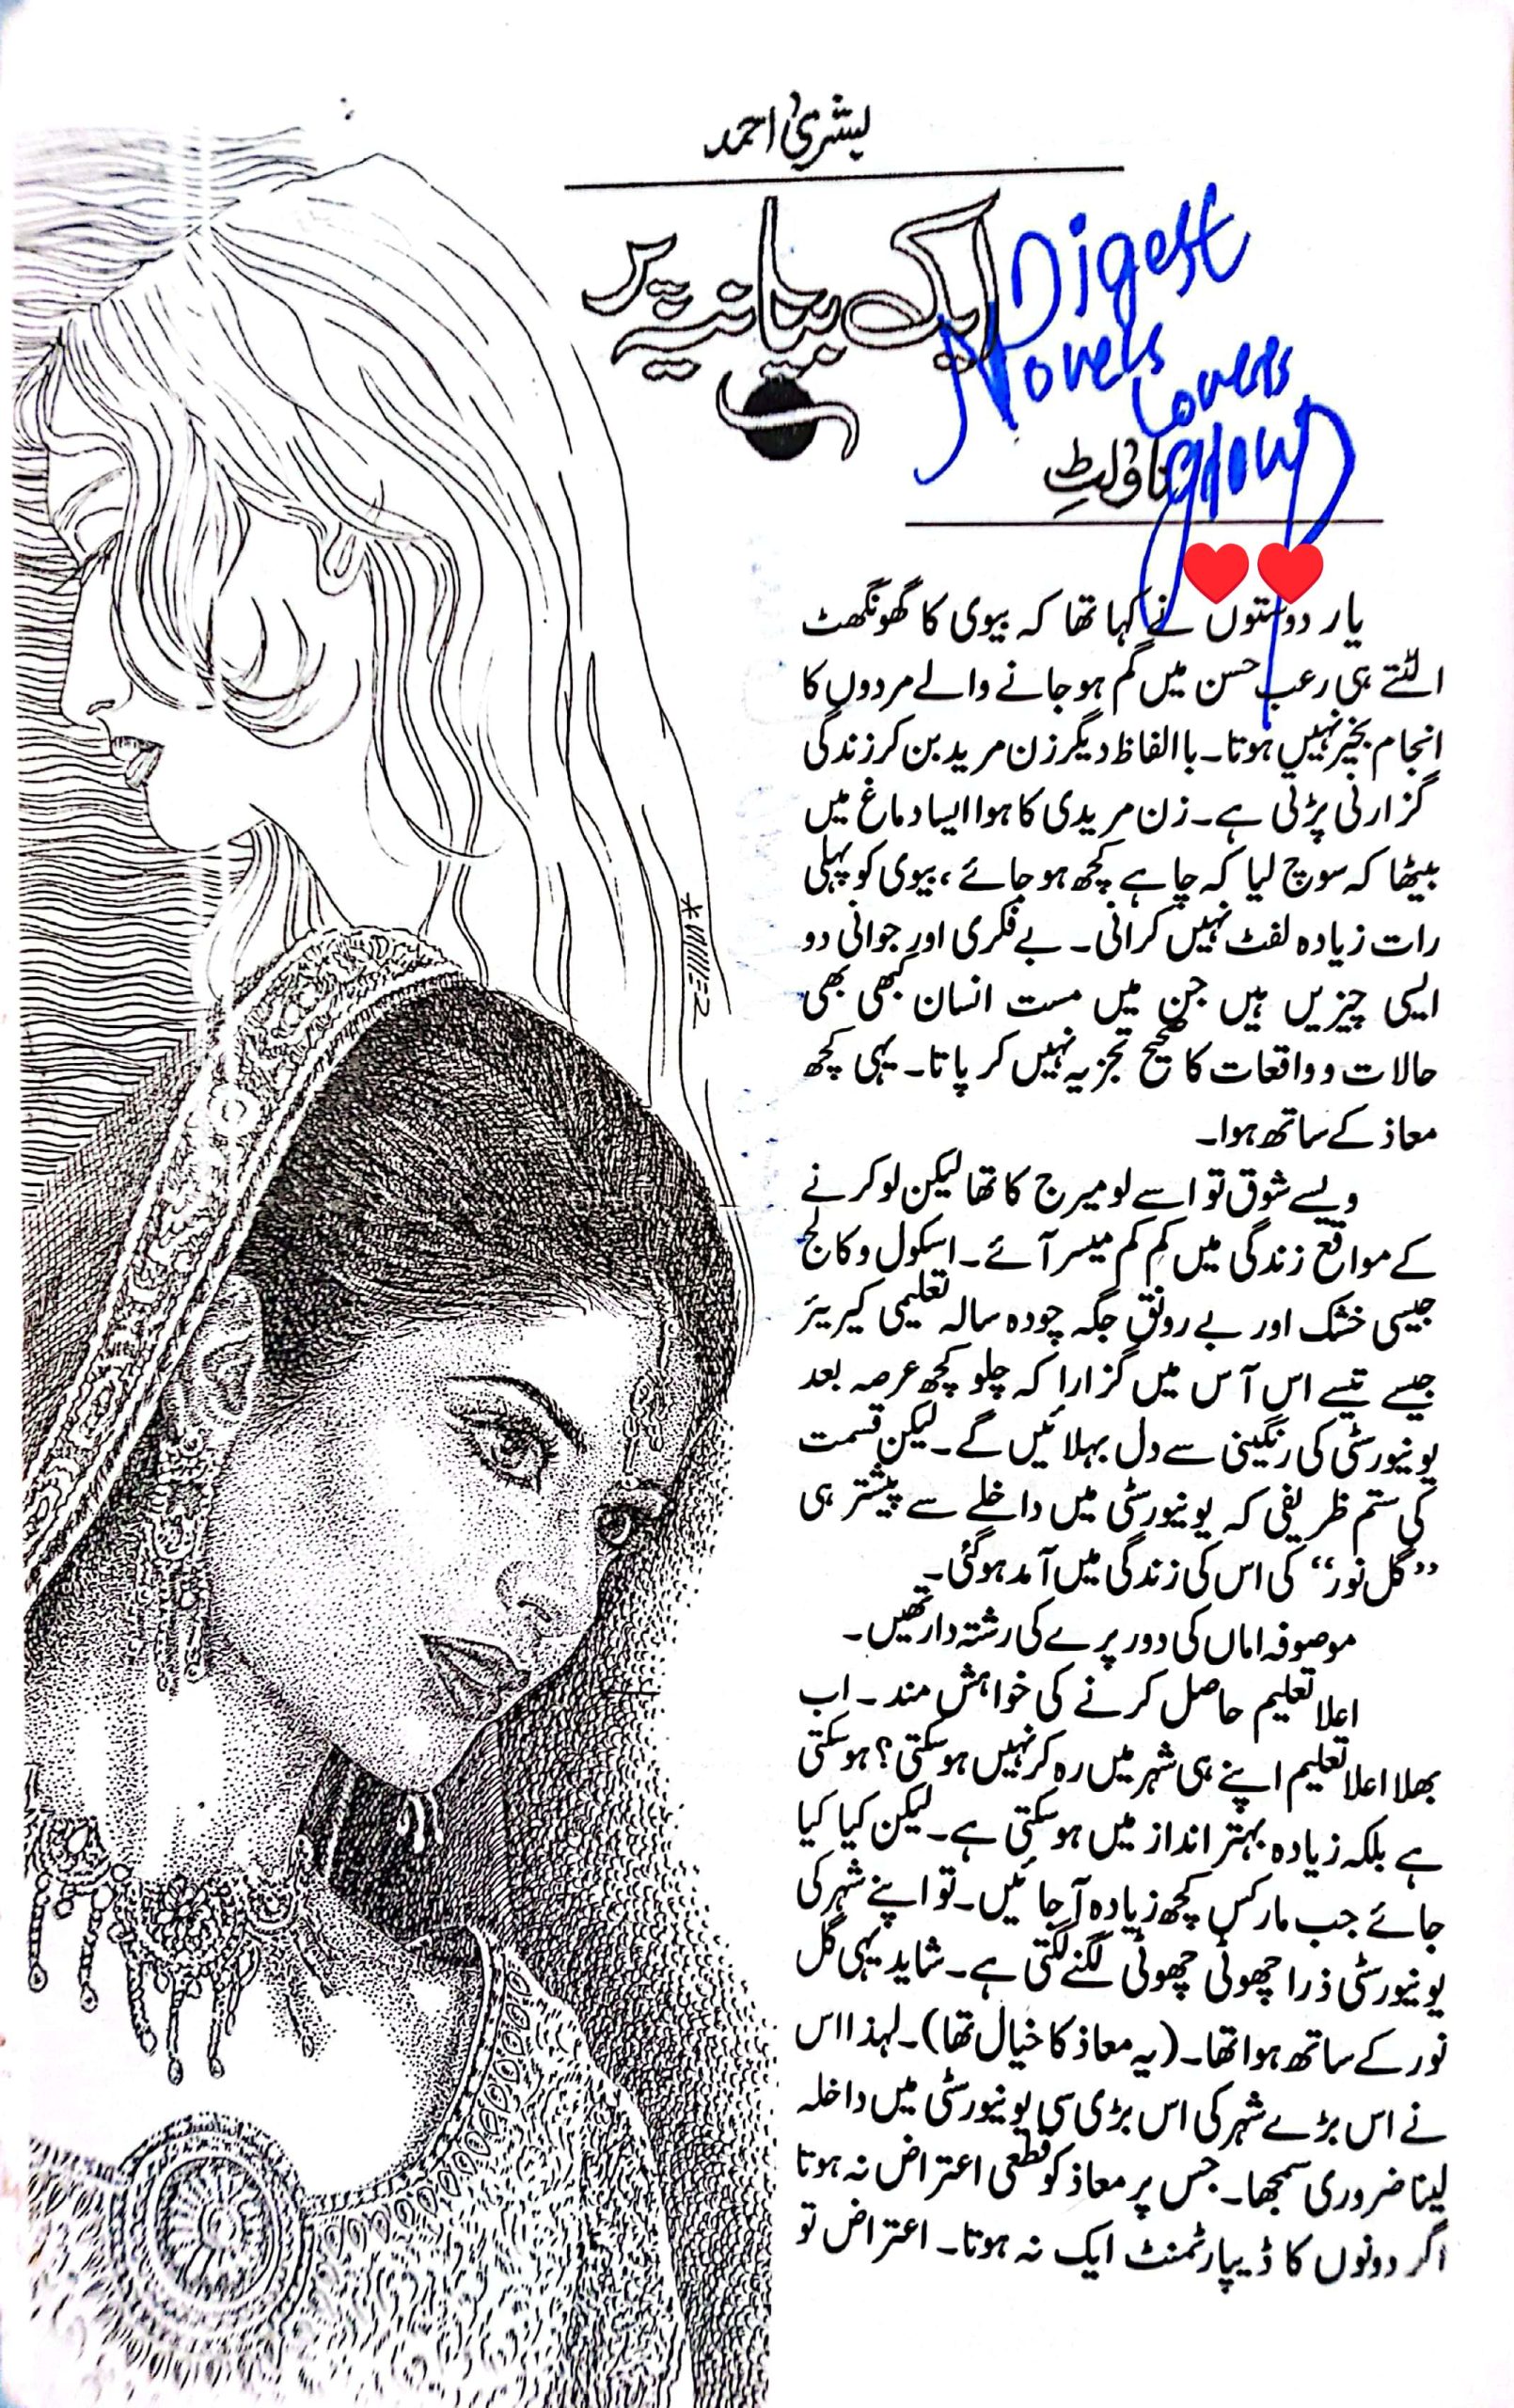 بشریٰ احمد
ایک بیانیے پر
Digest
Novels
Lovers
group
ناولٹ
یار دوستوں نے کہا تھا کہ بیوی کا گھونگھٹ
الٹتے ہی رعب حسن میں گم ہو جانے والے مردوں کا
انجام بخیر نہیں ہوتا۔ باالفاظ دیگر زن مرید بن کر زندگی
گزارنی پڑتی ہے۔ زن مریدی کا ہوا ایسا دماغ میں
بیٹھا کہ سوچ لیا کہ چاہے کچھ ہو جائے، بیوی کو پہلی
رات زیادہ لفٹ نہیں کرانی۔ بے فکری اور جوانی دو
ایسی چیزیں ہیں جن میں مست انسان کبھی بھی
حالات و واقعات کا صحیح تجزیہ نہیں کر پاتا۔ یہی کچھ
معاذ کے ساتھ ہوا۔
ویسے شوق تو اسے لو میرج کا تھا لیکن لو کرنے
کے مواقع زندگی میں کم کم میسر آئے۔ اسکول و کالج
جیسی خشک اور بے رونق جگہ چودہ سالہ تعلیمی کیریئر
جیسے تیسے اس آس میں گزارا کہ چلو کچھ عرصہ بعد
یونیورسٹی کی رنگینی سے دل بہلائیں گے۔ لیکن قسمت
کی ستم ظریفی کہ یونیورسٹی میں داخلے سے پیشتر ہی
”گل نور“ کی اس کی زندگی میں آمد ہوگئی۔
موصوفہ اماں کی دور پرے کی رشتہ دار تھیں۔
اعلا تعلیم حاصل کرنے کی خواہش مند۔ اب
بھلا اعلا تعلیم اپنے ہی شہر میں رہ کر نہیں ہوسکتی؟ ہوسکتی
ہے بلکہ زیادہ بہتر انداز میں ہوسکتی ہے۔ لیکن کیا کیا
جائے جب مارکس کچھ زیادہ آجائیں۔ تو اپنے شہر کی
یونیورسٹی ذرا چھوٹی چھوٹی لگنے لگتی ہے۔ شاید یہی گل
نور کے ساتھ ہوا تھا۔ (یہ معاذ کا خیال تھا)۔ لہذا اس
نے اس بڑے شہر کی اس بڑی سی یونیورسٹی میں داخلہ
لینا ضروری سمجھا۔ جس پر معاذ کو قطعی اعتراض نہ ہوتا
اگر دونوں کا ڈیپارٹمنٹ ایک نہ ہوتا۔ اعتراض تو